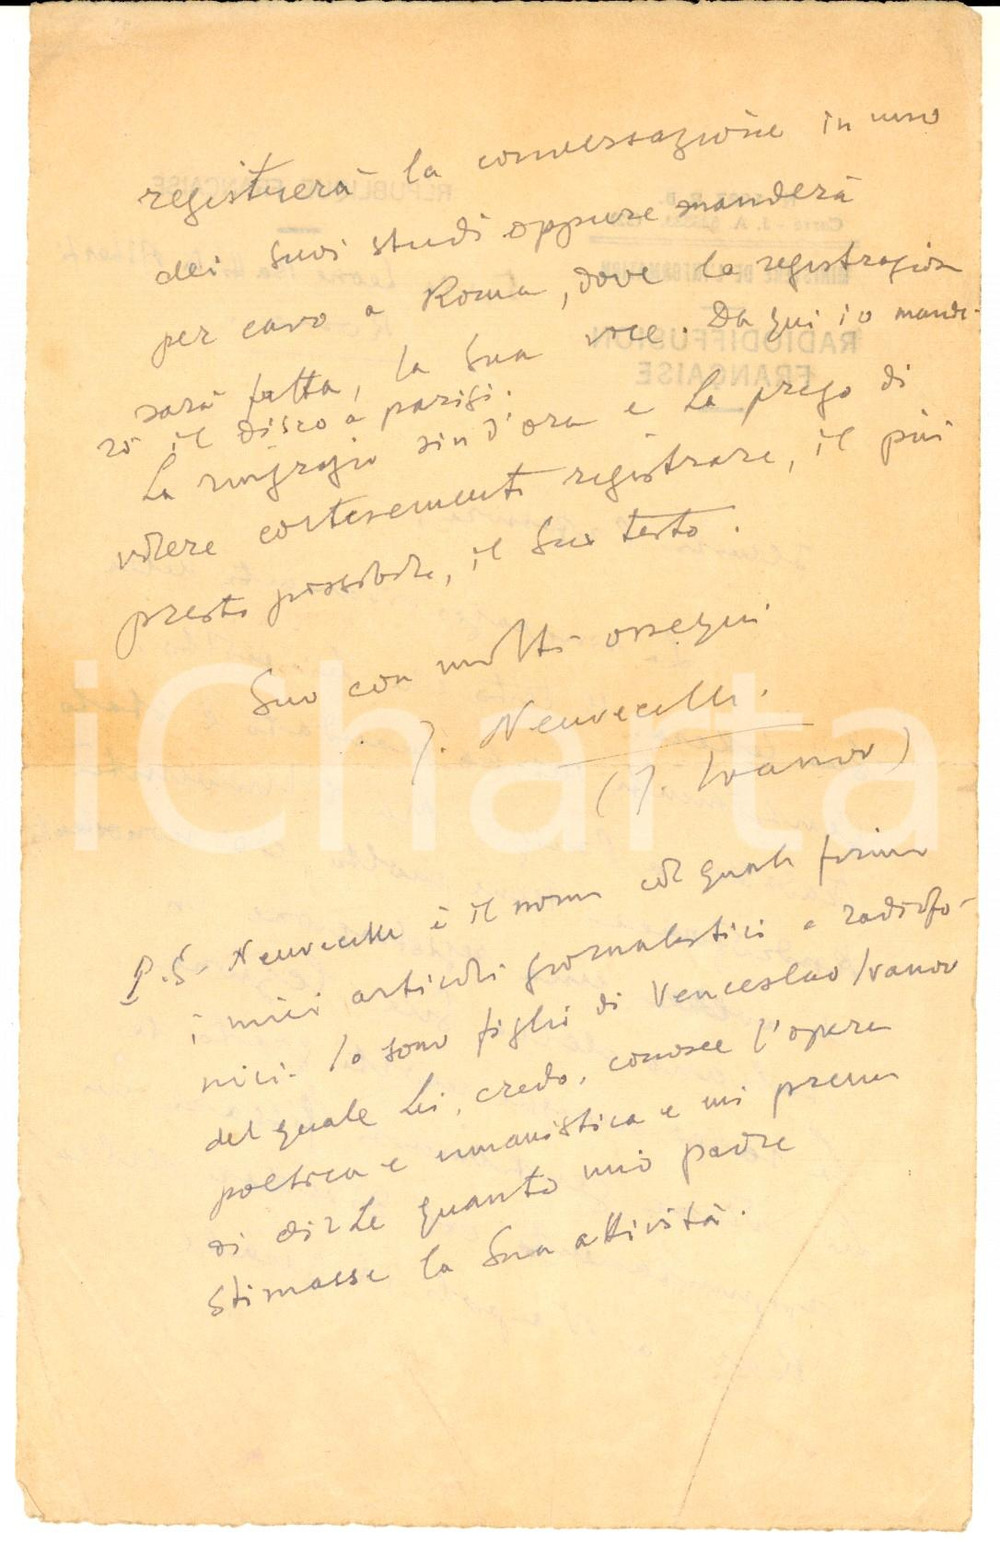 registrerà la conversazione in uno
dei suoi studi oppure manderà
per cavo a Roma, dove la registrazione
sarà fatta, la Sua voce. Da qui io mande-
rò il disco a parigi.
La ringrazio sin d'ora e La prego di
volere cortesemente registrare, il più
presto possibile, il Suo testo.
Suo con molti ossequi
J. Neuvecelle.
(J. Ivanov)
P.S. Neuvecelle è il nome col quale firmo
i miei articoli giornalistici e radiofo-
nici. Io sono figlio di Venceslao Ivanov
del quale Lei, credo, conosce l'opera
poetica e umanistica e mi preme
di dirLe quanto mio padre
stimasse la Sua attività.
iCharta
REPUBLIQUE FRANÇAISE
RADIODIFFUSION
FRANÇAISE